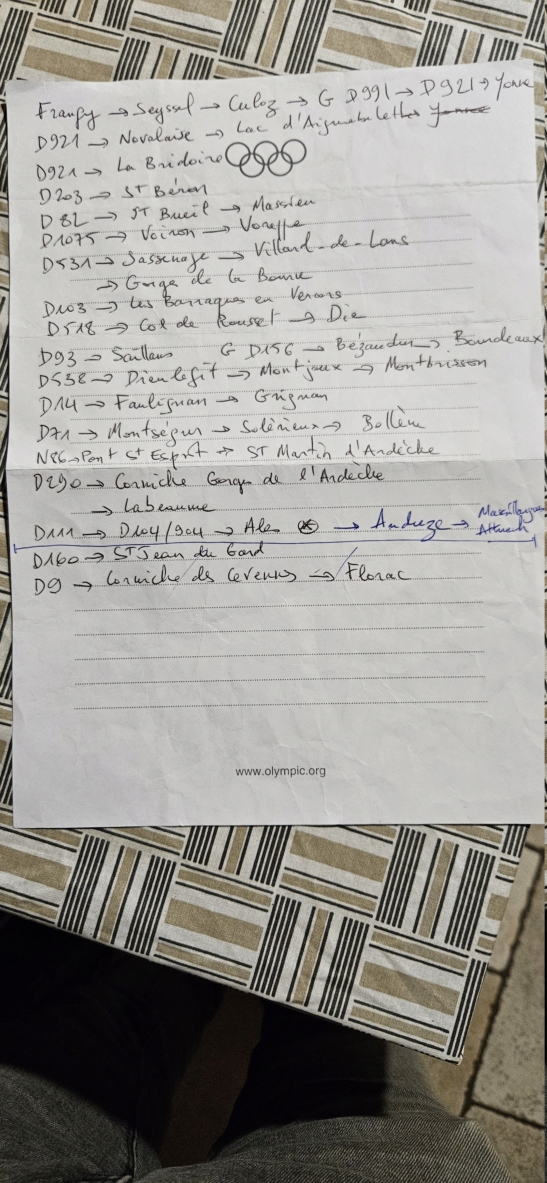 Frangy → Seyssel → Culoz → G D991 → D921 → Yenne
D921 → Novalaise → Lac d'Aiguebelette
D921 → La Bridoire
D203 → ST Béron
D82 → ST Bueil → Massieu
D1075 → Voiron → Voreppe
D531 → Sassenage → Villard-de-Lans
→ Gorge de la Bourne
D103 → Les Barraques en Vercors
D518 → Col de Rousset → Die
D93 → Saillans G D156 → Bézaudun → Bourdeaux
D538 → Dieulefit → Montjoux → Montbrisson
D14 → Faulignan → Grignan
D71 → Montségur → Solérieux → Bollène
N86 → Pont St Esprit → ST Martin d'Ardèche
D290 → Corniche Gorges de l'Ardèche
→ Labeaume
D111 → D104/904 → Ales → Anduze → Massillargues
Attuech
D160 → ST Jean du Gard
D9 → Corniche des Cevennes → Florac
www.olympic.org